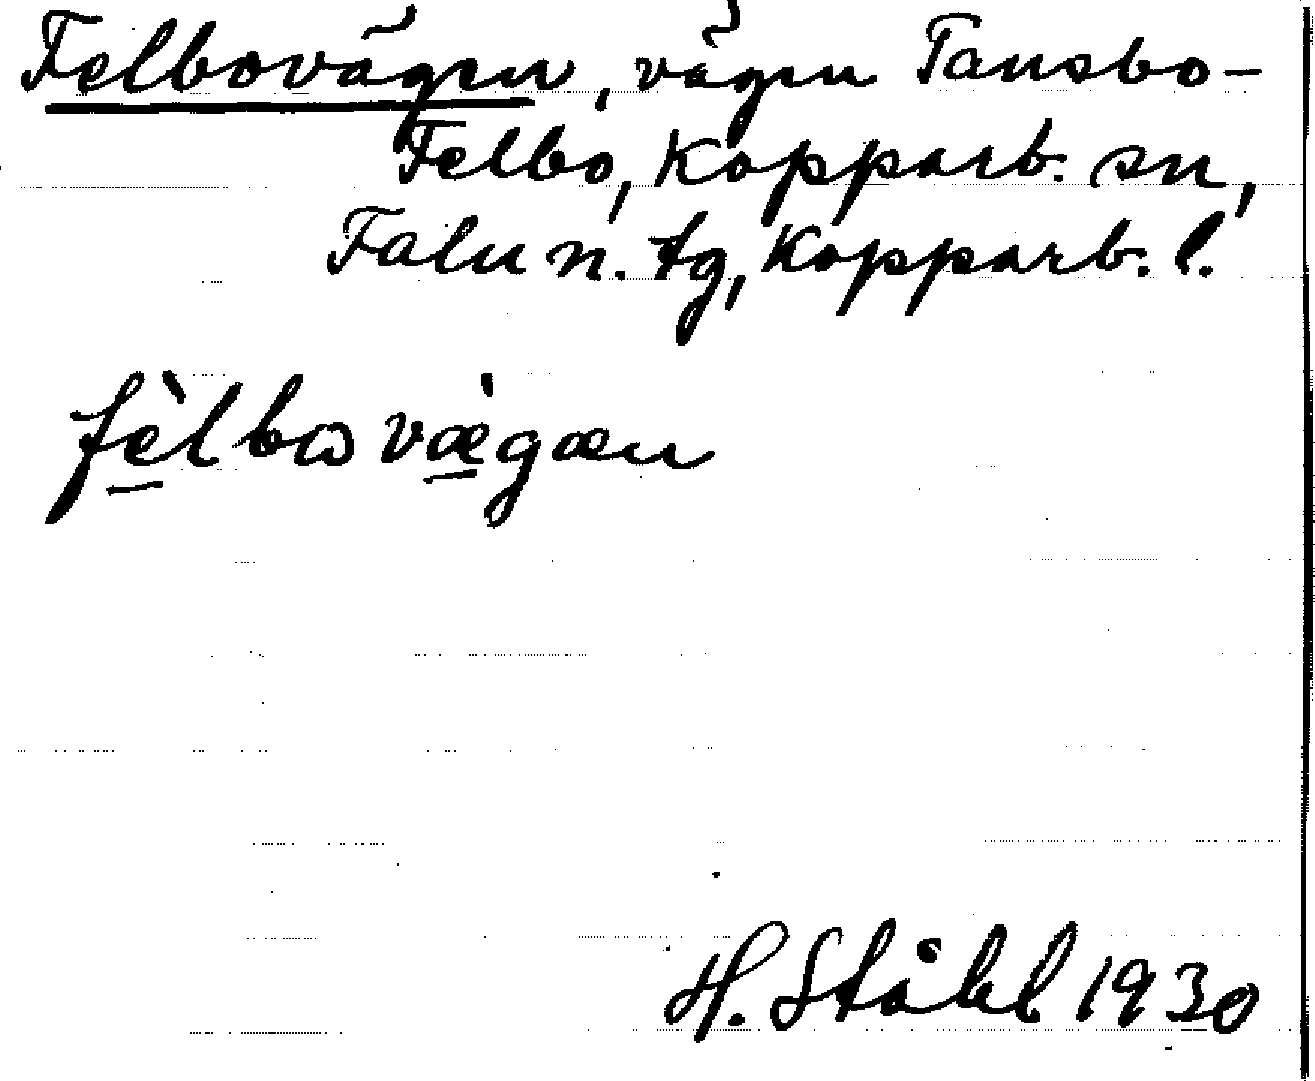 Felbovägen, vägen Tansbo-
Felbo, Kopparb. sn,
Falu n. tg, Kopparb. l.
fèlbɷvæ̀gæn
H. Ståhl 1930